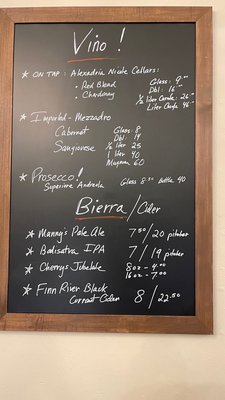 Vino!
★ ON TAP: Alexandria Nicole Cellars:
• Red Blend
• Chardonnay
Glass: 9
Dbl: 16
½ liter Carafe 26
Liter Carafe 46
★ Imported - Mezzadro
Cabernet
Sangiovese
Glass: 8
Dbl: 14
½ liter 25
1 liter 40
Magnum 60
★ Prosecco!
Superiore Andreola
Glass 8.50 Bottle 40
Bierra/Cider
★ Manny's Pale Ale 7.50/20 pitcher
★ Bodisatva IPA 7/19 pitcher
★ Cherrys Jubelale 8oz - 4.00
16oz - 7.00
★ Finn River Black
Currant Cider 8/22.50